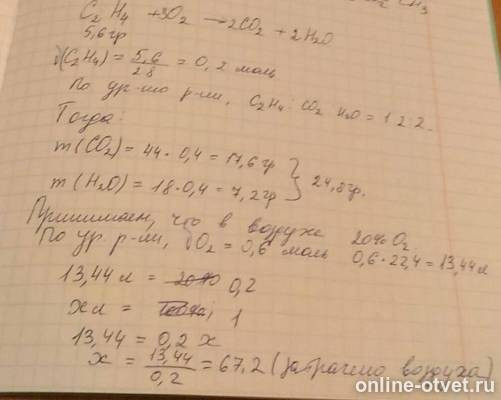 CH₃
C₂H₄ + 3O₂ → 2CO₂ + 2H₂O
5,6гр
ϑ(C₂H₄) = 5,6/28 = 0,2 моль
По ур-ию р-ии, C₂H₄: CO₂ H₂O = 1 2:2.
Тогда:
m(CO₂) = 44·0,4 = 17,6гр
m(H₂O) = 18·0,4 = 7,2гр } 24,8гр.
Принимаем, что в воздухе 20% O₂
По ур р-ии, ϑO₂ = 0,6 моль 0,6·22,4 = 13,44л
13,44 л = 0,2
x л = 1
13,44 = 0,2 x
x = 13,44/0,2 = 67,2 (затрачено воздуха)
online-otvet.ru